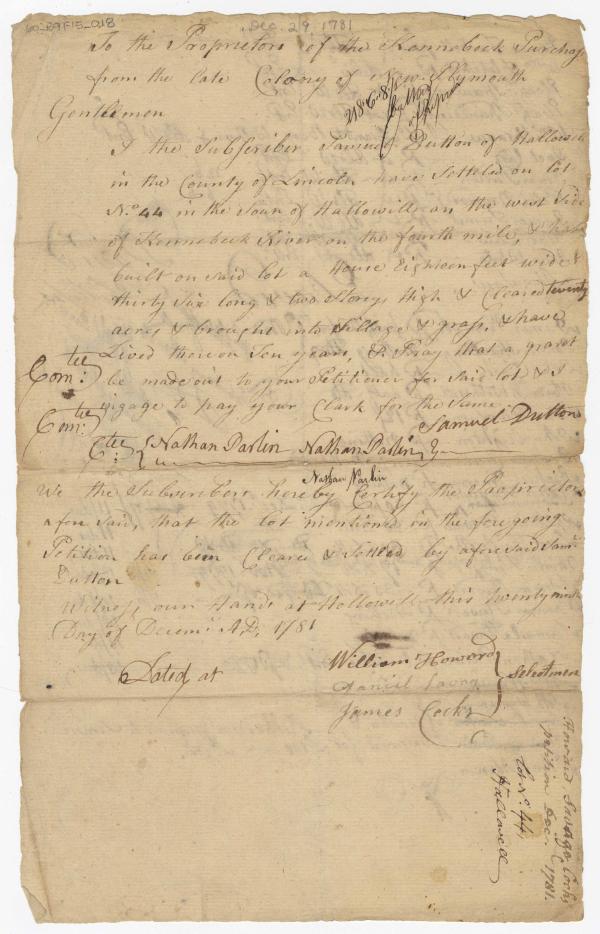 60_B9F15_018
Dec. 29 1781
To the Proprietors of the Kennebeck Purchas
from the late Colony of New Plymouth
Gentlemen
I the Subscriber Samuel Dutton of Hallowell
in the County of Lincoln have Settled on lot
No. 44 in the Town of Hallowill on the west Side
of Kennebeck River on the fourth mile, & have
built on said lot a House Eighteen feet wide &
thirty Six long & two Storeys High & Cleared twenty
acres & brought into tillage & grass, & have
Lived thereon Ten years, & Pray that a grant
Comtee: be made out to your Petitioner for Said lot & I
Comtee: ingage to pay your Clark for the Same
Samuel Dutton
Ctee: { Nathan Parlin Nathan Parlin }
Nathan Parlin
We the Subscribers hereby Certify the Proprietors
afore Said, that the lot mentioned in the foregoing
Petition has been Cleared & Settled by afore said Saml
Dutton
Witness our Hands at Hallowell this twenty ninth
Day of Decemr. A,D, 1781
Dated at
William Howard
Daniel Savag
James Cocks
Selectmen
Howard, Savage Cocks
petition Dec. 1781.
Lot No. 44
Hallowell